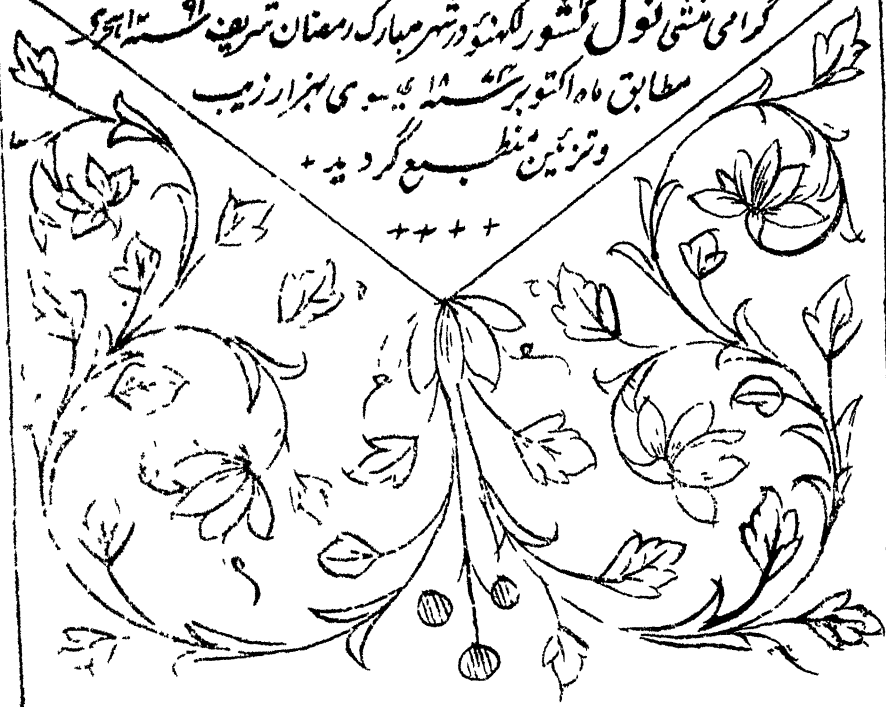 گرامی منشی نول کشور لکهنؤ در شهر مبارک رمضان شریف سنه ۱۲۹۱ هجری
مطابق ماه اکتوبر سنه ۱۸۷۴ عیسوی بهزار زیب
وتزئین منطبع گردید +
+ + + +